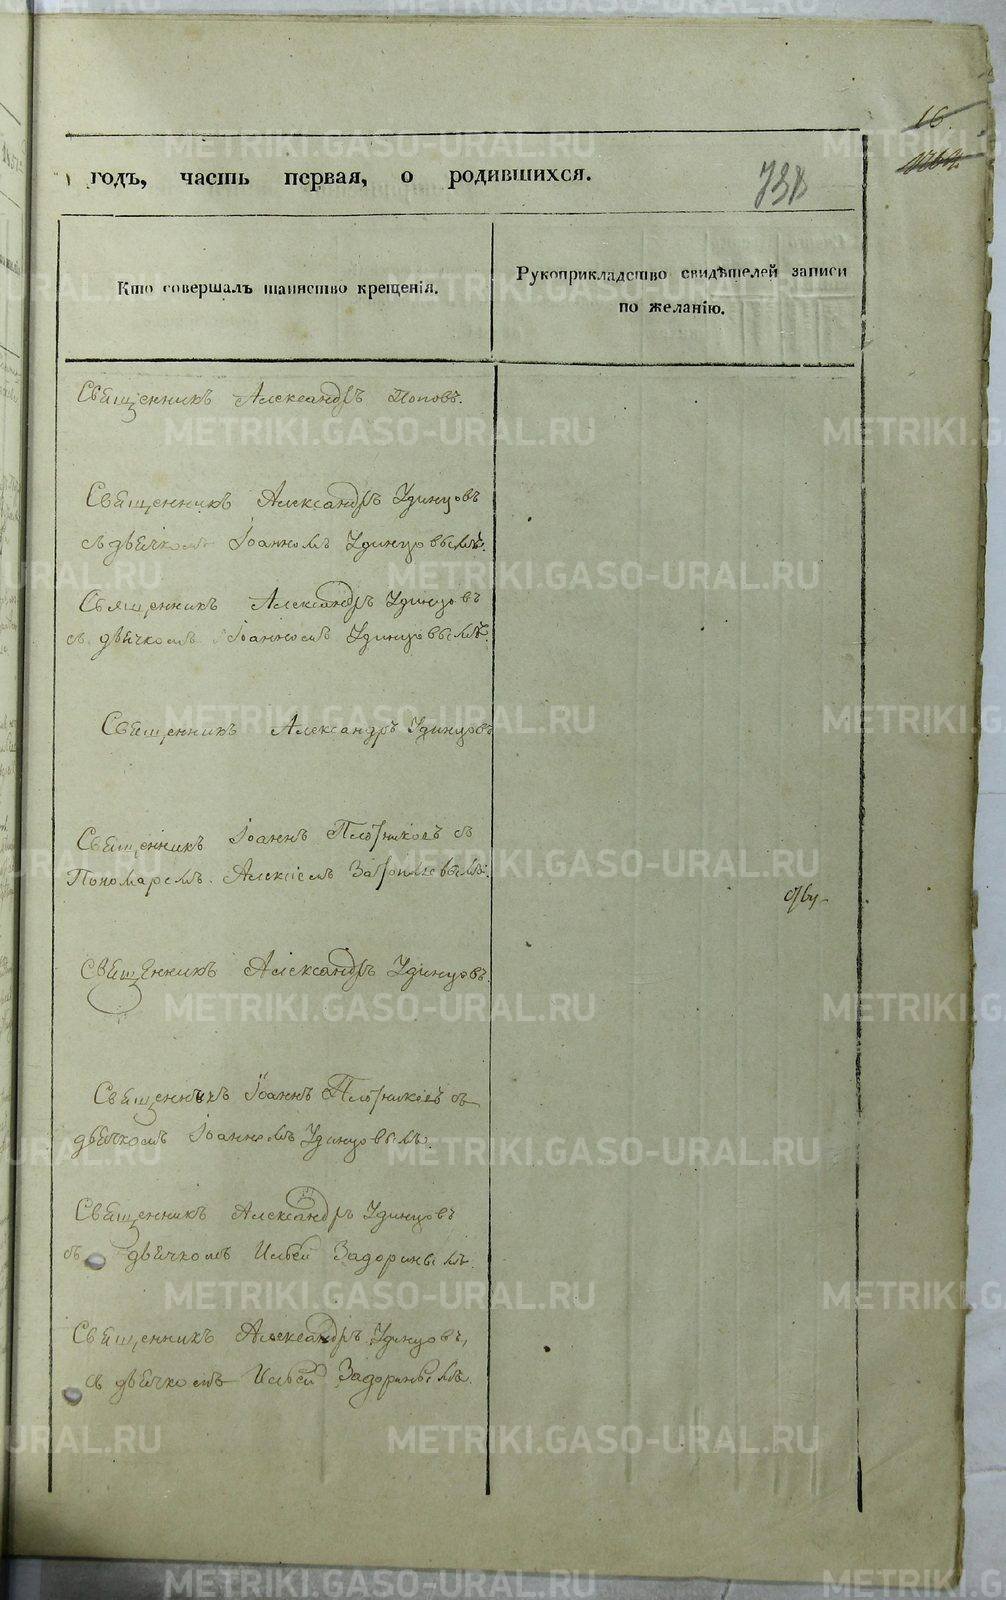 16
годъ, часть первая, о родившихся.
Кто совершалъ таинство крещенія.
Рукоприкладство свидѣтелей записи
по желанію.
Священникъ Александръ Поповъ.
Священникъ Александръ Удинцовъ
съ дьячкомъ Іоанномъ Удинцовымъ.
Священникъ Александръ Удинцовъ
съ дьячкомъ Іоанномъ Удинцовымъ.
Священникъ Александръ Удинцовъ
Священникъ Іоаннъ Плотниковъ съ
Пономаремъ Алексіемъ
Священникъ Александръ Удинцовъ.
Священникъ Іоаннъ Плотниковъ съ
дьячкомъ Іоанномъ Удинцовымъ.
Священникъ Александръ Удинцовъ
съ дьячкомъ Ильей Задоринымъ.
Священникъ Александръ Удинцовъ,
съ дьячкомъ Ильей Задоринымъ.
METRIKI.GASO-URAL.RU